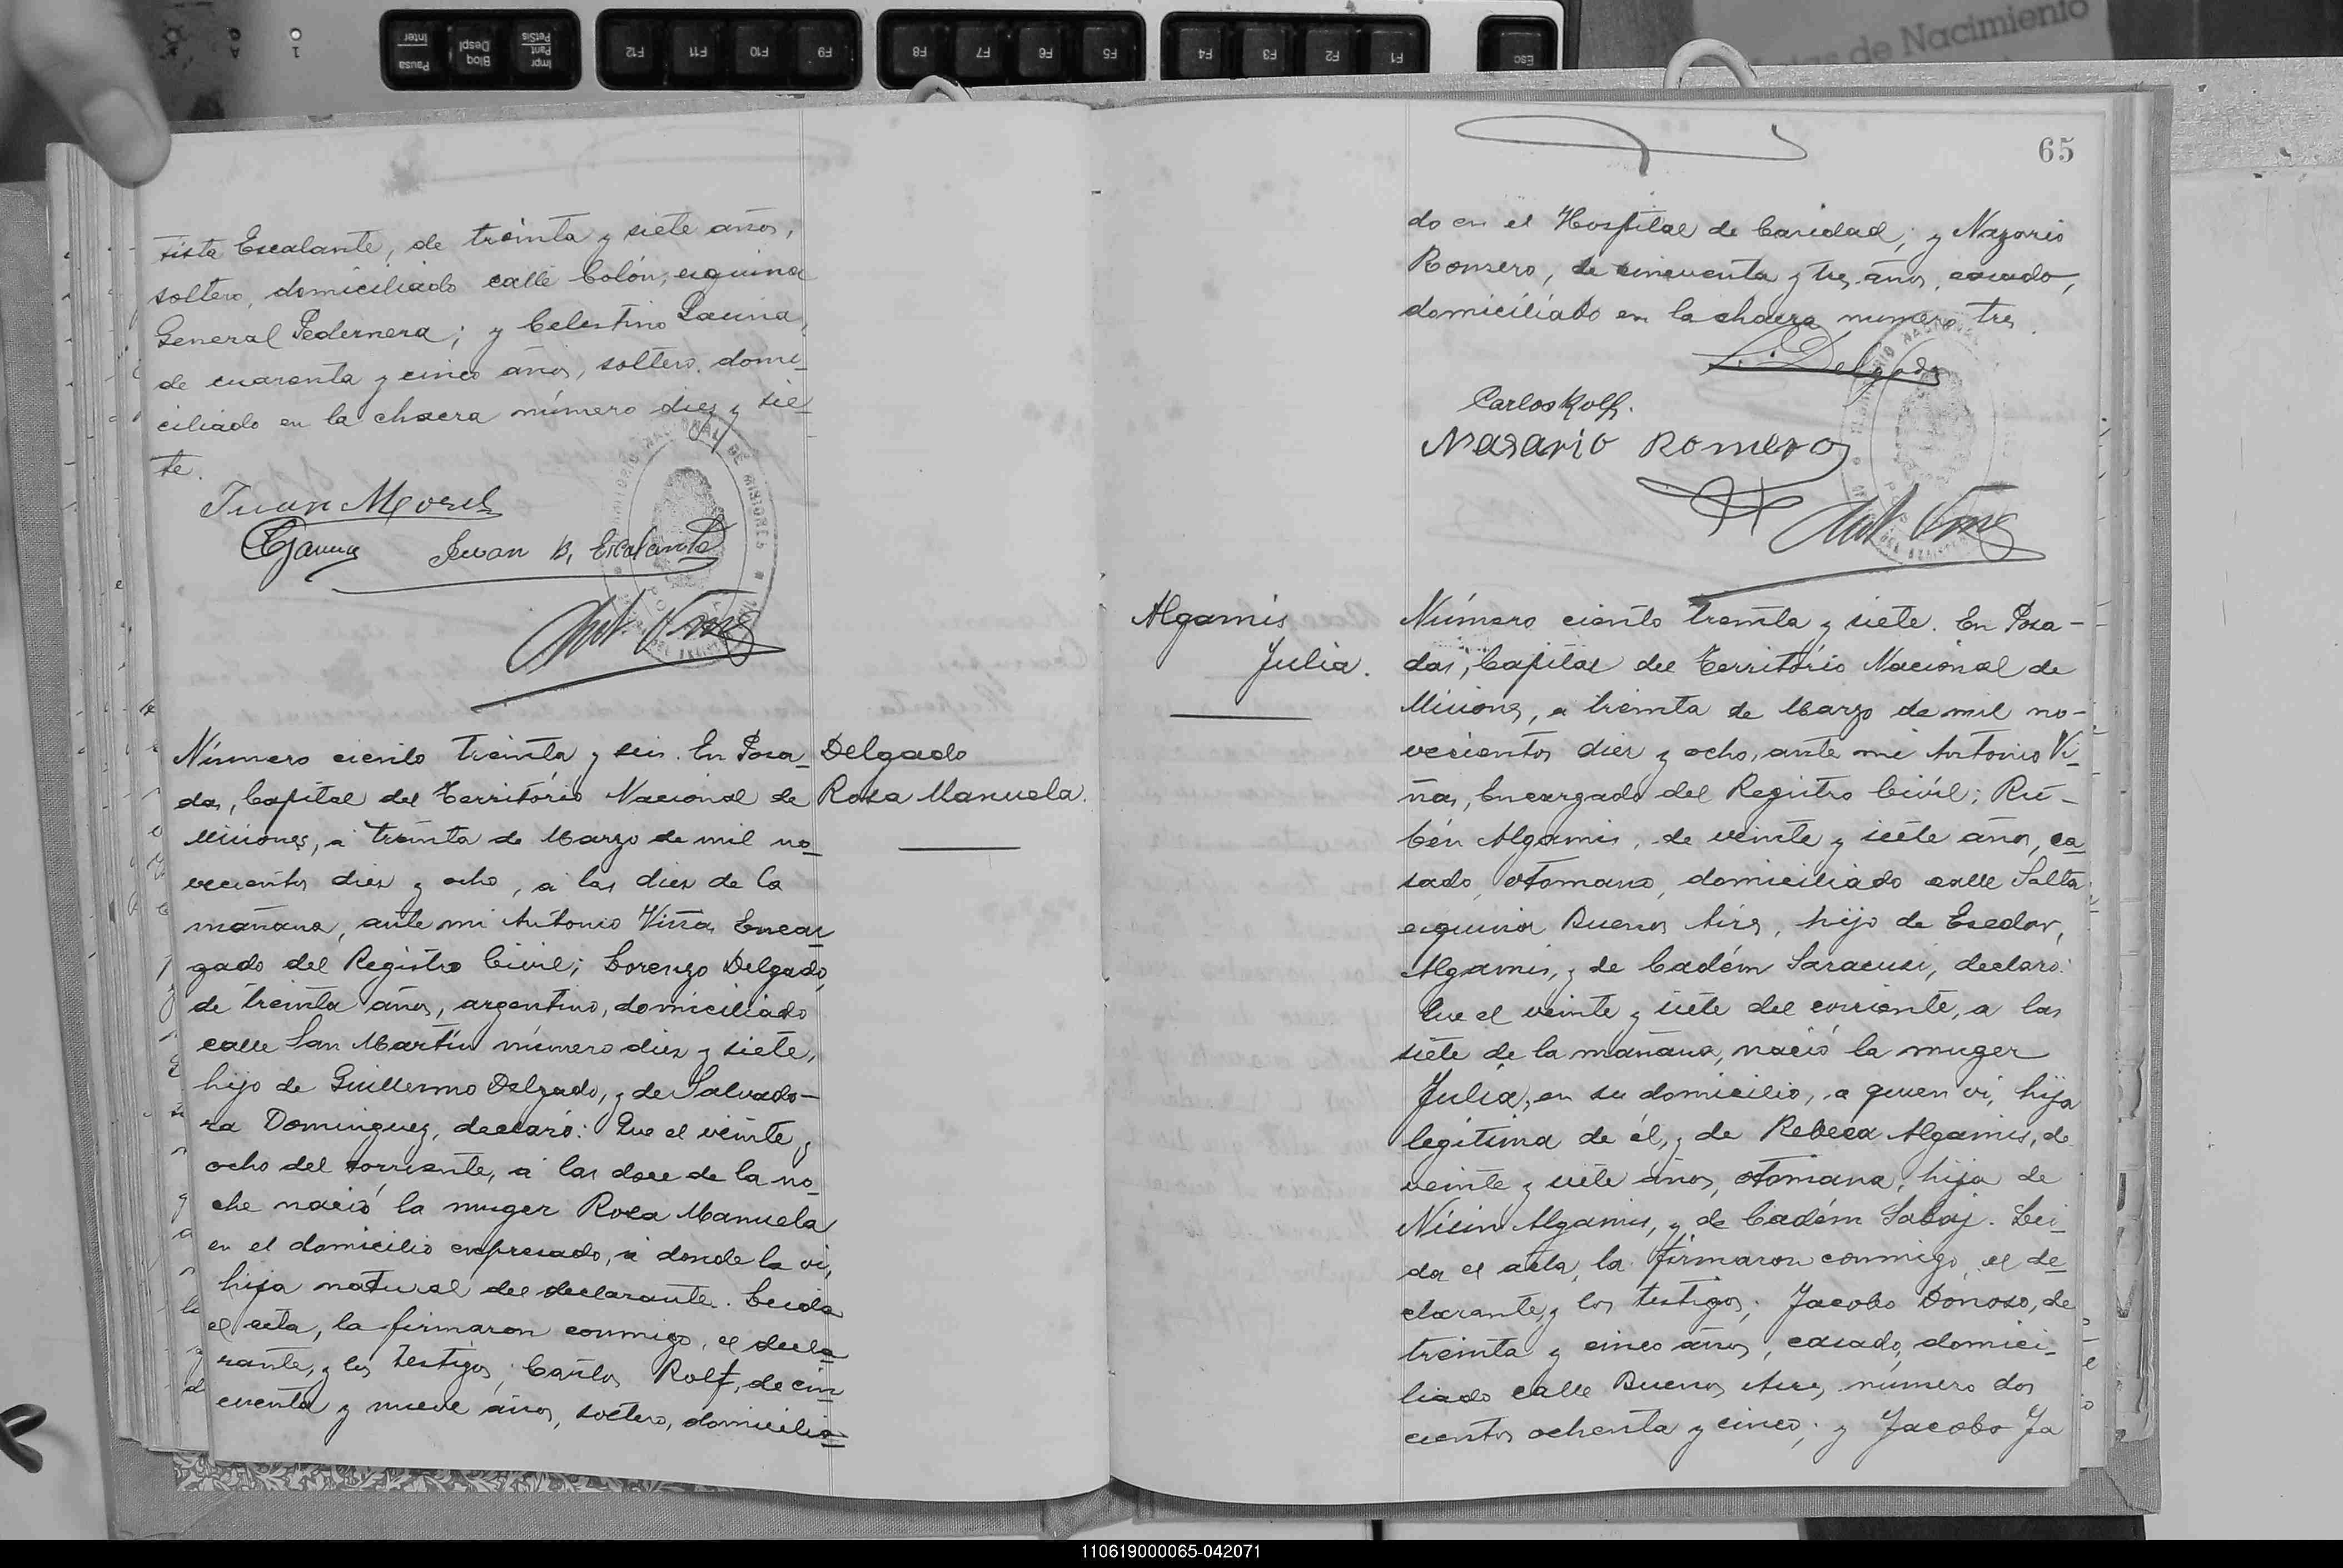 Pausa
Inter
Bloq
Despl
Impr
Pant
PetSis
F12
F11
F10
F9
F8
F7
F6
F5
F4
F3
F2
F1
Esc
de Nacimiento
tista Escalante, de treinta y siete años,
soltero, domiciliado calle Colón, esquina
General Pedernera; y Celestino
de cuarenta y cinco años, soltero, domi-
ciliado en la chacra número diez y sie-
te.
Juan Morel
Juan B. Escalante
Número ciento treinta y seis. En Posa-
das, Capital del Territorio Nacional de
Misiones, a treinta de Marzo de mil no-
vecientos diez y ocho, a las diez de la
mañana, ante mi Antonio Viñas Encar-
gado del Registro Civil; Lorenzo Delgado,
de treinta años, argentino, domiciliado
calle San Martín número diez y siete,
hijo de Guillermo Delgado, y de Salvado-
ra Dominguez, declaró: Que el veinte y
ocho del corriente, a las doce de la no-
che nació la muger Rosa Manuela
en el domicilio expresado, a donde la vi,
hija natural del declarante. Leida
el acta, la firmaron conmigo, el decla-
rante, y los testigos; Carlos Rolf, de cin-
cuenta y nueve años, soltero, domicilia-
Delgado
Rosa Manuela.
65
do en el Hospital de Caridad; y Nazario
Romero, de cincuenta y tres años, casado,
domiciliado en la chacra numero tres.
L. Delgado
Carlos Rolf.
Nasario Romero
Algamis
Julia.
Número ciento treinta y siete. En Posa-
das, Capital del Territorio Nacional de
Misiones, a treinta de Marzo de mil no-
vecientos diez y ocho, ante mi Antonio Vi-
ñas, Encargado del Registro Civil; Ru-
bén Algamis, de veinte y siete años, ca-
sado, otomano, domiciliado calle Salta
esquina Buenos Aires, hijo de Esedor,
Algamis, y de Cadém Saracusi, declaró:
Que el veinte y siete del corriente, a las
siete de la mañana, nació la muger
Julia, en su domicilio, a quien vi, hija
legítima de él, y de Rebeca Algamis, de
veinte y siete años, otomana, hija de
Nisin Algamis, y de Cadém Sabaj. Lei-
da el acta, la firmaron conmigo, el de-
clarante, y los testigos; Jacobo Donoso, de
treinta y cinco años, casado, domici-
liado calle Buenos Aires, número dos
cientos ochenta y cinco; y Jacobo Ja
110619000065-042071